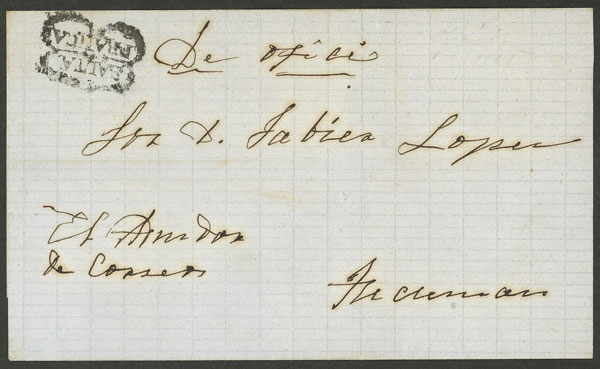 SALTA
FRANCA
De oficio
Sor D. Jabier Lopez
El Admdor
de Correos
Tucuman